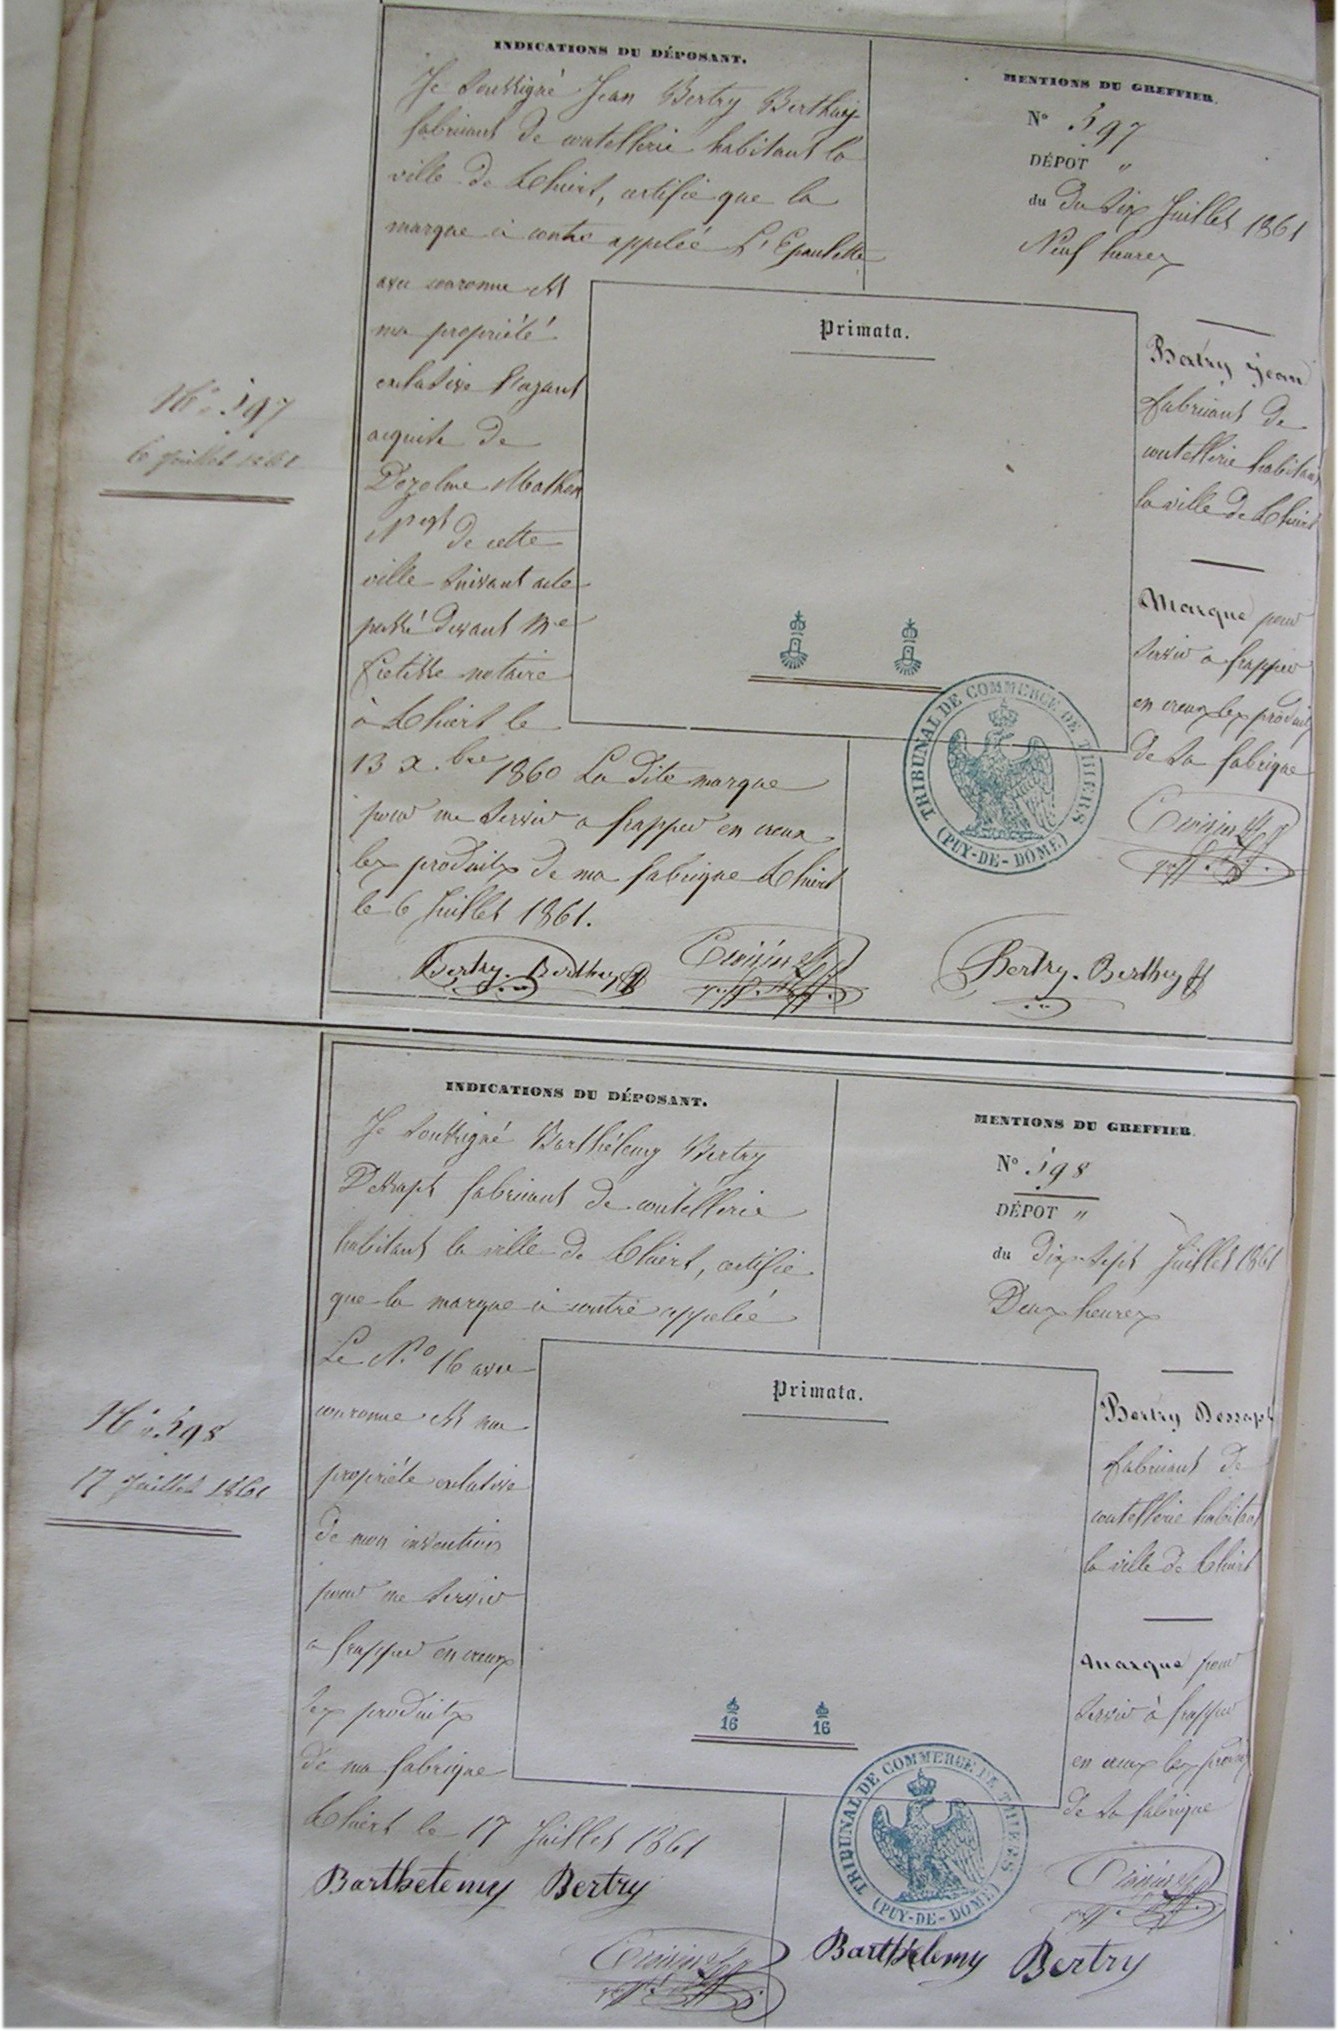 INDICATIONS DU DÉPOSANT.
Je soussigné Jean Bertry Berthuy
fabricant de coutellerie habitant la
ville de Thiers, certifie que la
marque ci contre appelée L'Epaulette
avec couronne est
ma propriété
exclusive l'ayant
acquise de
Dozolme Mathon
Negt de cette
ville suivant acte
passé devant Me
notaire
à Thiers le
13 Xbre 1860 La dite marque
pour me servir a frapper en creux
les produits de ma fabrique Thiers
le 6 Juillet 1861.
Bertry-Berthuy
MENTIONS DU GREFFIER.
No 597
DÉPOT "
du Du six Juillet 1861
Neuf heures
Primata.
Bertry Jean
fabricant de
coutellerie habitant
la ville de Thiers
Marque pour
servir a frapper
en creux les produits
de sa fabrique
TRIBUNAL DE COMMERCE DE THIERS
(PUY-DE-DOME)
Bertry-Berthuy
No 597
6 Juillet 1861
INDICATIONS DU DÉPOSANT.
Je soussigné Barthélemy Bertry
Dessapt fabricant de coutellerie
habitant la ville de Thiers, certifie
que la marque ci contre appelée
Le No 16 avec
couronne est ma
propriété exclusive
de mon invention
pour me servir
a frapper en creux
les produits
de ma fabrique
Thiers le 17 Juillet 1861
Barthelemy Bertry
MENTIONS DU GREFFIER.
No 598
DÉPOT "
du dix sept Juillet 1861
Deux heures
Primata.
16 16
Bertry Dessapt
fabricant de
coutellerie habitant
la ville de Thiers
Marque pour
servir à frapper
en creux les produits
de sa fabrique
TRIBUNAL DE COMMERCE DE THIERS
(PUY-DE-DOME)
Barthélemy Bertry
No 598
17 Juillet 1861